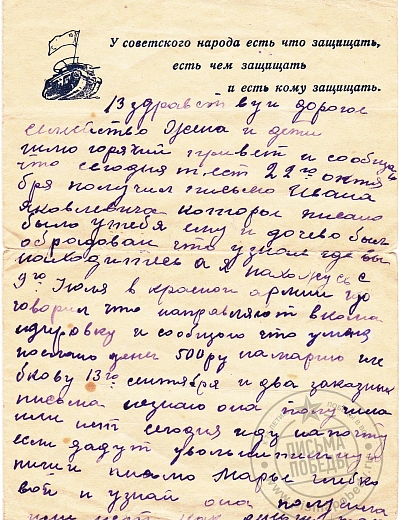 У советского народа есть что защищать,
есть чем защищать
и есть кому защищать.
Здравствуй дорогое
семейство и дети
шлю горячий привет и сообщаю
что сегодня т. ест 22го октя
бря получил письмо Ивана
Яковлевича которы писано
было у тебя ему и дочево был
обрадован что узнал где вы
находитесь а я нахожусь с
9го Июля в красной армии
говорил что направляют в кома
ндировку и сообщаю что у меня
послано денег 500 ру на марию гле
бкову 13го сентября и два заказных
письма незнаю она получила
или нет сегодня иду на почту
если дадут увольнительную
пиши письмо Марье глебко
вой и узнай она получила
или нет
ПИСЬМА
ПОБЕДЫ